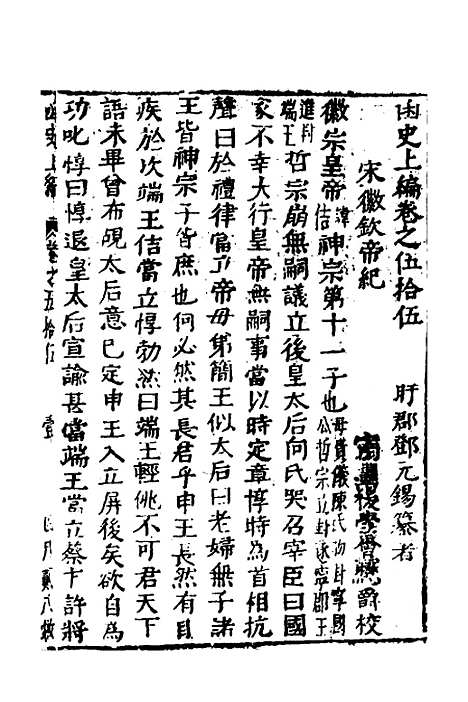 函史上編卷之伍拾伍　　盱郡鄧元錫纂著
宋徽欽帝紀　　後學　爵校
徽宗皇帝諱佶神宗第十一子也母貴儀陳氏初封寧國公哲宗立封遂寧郡王
進封端王哲宗崩無嗣議立後皇太后向氏哭召宰臣曰國
家不幸大行皇帝無嗣事當以時定章惇時為首相抗
聲曰於禮律當乃帝母弟簡王似太后曰老婦無子諸
王皆神宗子皆庶也何必然其長君乎申王長然有目
疾於次端王佶當立惇勃然曰端王輕佻不可君天下
語未畢曾布覘太后意已定申王入立屏後矣欲自為
功叱惇曰惇退皇太后宣諭甚當端王當立蔡卞許將
函史上編　卷之五拾伍　壹